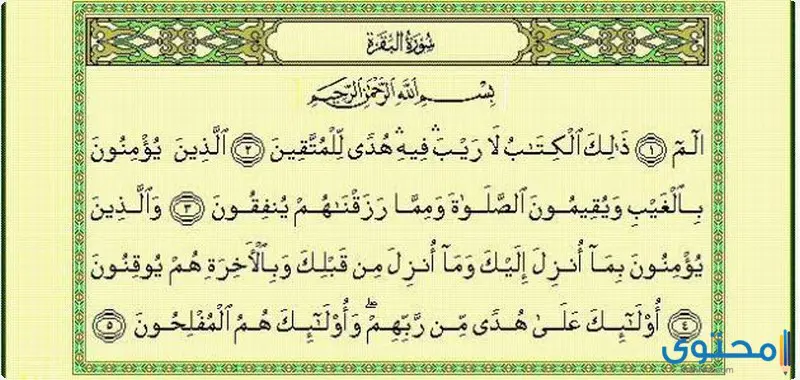 سُورَةُ الْبَقَرَةِ
بِسْمِ اللَّهِ الرَّحْمَٰنِ الرَّحِيمِ
الٓمٓ ١ ذَٰلِكَ الْكِتَابُ لَا رَيْبَ ۛ فِيهِ ۛ هُدًى لِّلْمُتَّقِينَ ٢ الَّذِينَ يُؤْمِنُونَ
بِالْغَيْبِ وَيُقِيمُونَ الصَّلَوٰةَ وَمِمَّا رَزَقْنَاهُمْ يُنفِقُونَ ٣ وَالَّذِينَ
يُؤْمِنُونَ بِمَآ أُنزِلَ إِلَيْكَ وَمَآ أُنزِلَ مِن قَبْلِكَ وَبِالْأَخِرَةِ هُمْ يُوقِنُونَ
٤ أُوْلَٰٓئِكَ عَلَىٰ هُدًى مِّن رَّبِّهِمْ ۖ وَأُوْلَٰٓئِكَ هُمُ الْمُفْلِحُونَ ٥
محتوى